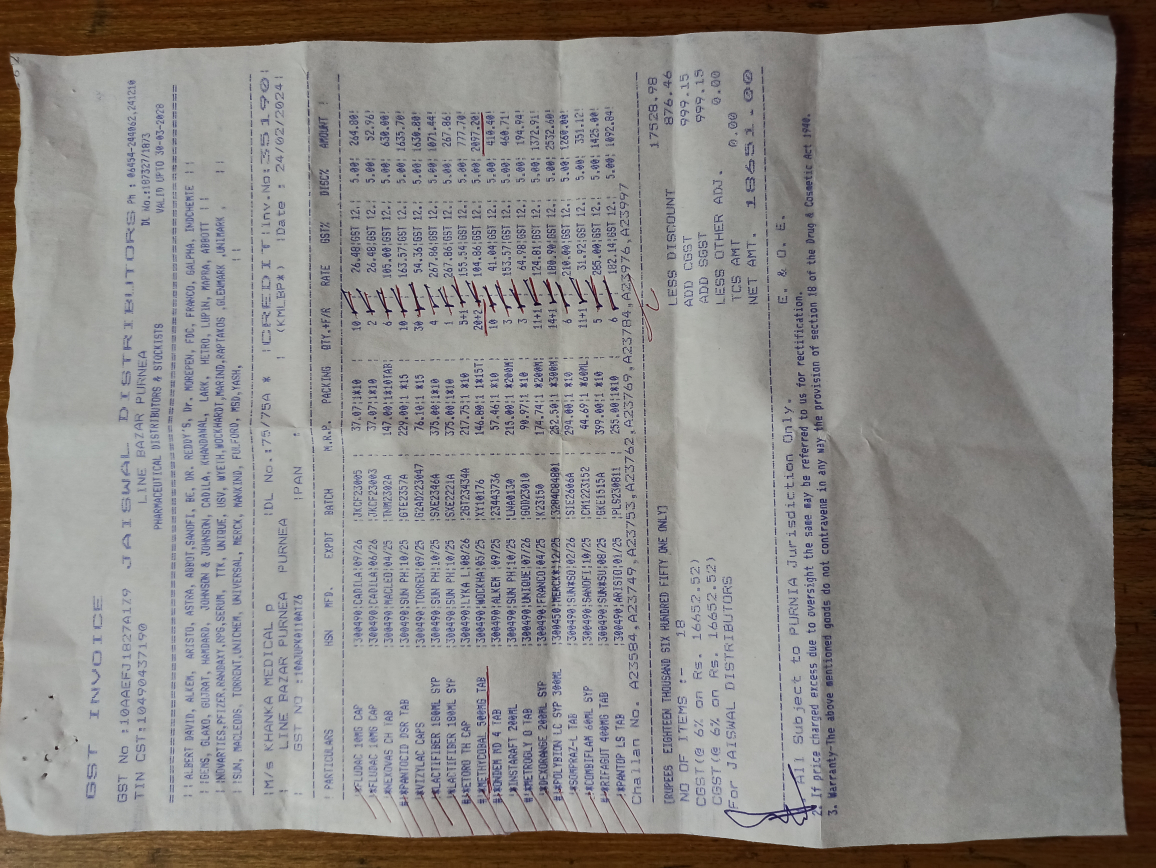 GST INVOICE
GST No :10AAEFJ1827A1Z9 JAISWAL DISTRIBUTORS Ph : 06454-244062,241210
TIN CST:10490437190 LINE BAZAR PURNEA DL No.:187327/1873
PHARMACEUTICAL DISTRIBUTORS & STOCKISTS VALID UPTO 30-03-2028
ALBERT DAVID, ALKEM, ARISTO, ASTRA, ABBOT,SANOFI, BE, DR. REDDY'S, Dr. MOREPEN, FDC, FRANCO, GALPHA, INDCHEMIE
GEMS, GLAXO, GUJRAT, HAMDARD, JOHNSON & JOHNSON, CADILA, KHANDAWAL, LARK, HETRO, LUPIN, MAPRA, ABBOTT
NOVARTIES,PFIZER,RANBAXY,RPG,SERUM, TTK, UNIQUE, USV, WYETH,WOCKHARDT,MARIND,RAPTAKOS ,GLENMARK ,UNIMARK ,
SUN, MACLEODS, TORRENT,UNICHEM, UNIVERSAL, MERCK, MANKIND, FULFORD, MSD,YASH,
M/s KHANKA MEDICAL p |DL No.:75/75A * |CREDIT|Inv.No:35190|
LINE BAZAR PURNEA PURNEA | (KMLBP*) |Date : 24/02/2024|
GST NO : |PAN :
| PARTICULARS HSN MFD. EXPDT BATCH M.R.P. PACKING QTY.+F/R RATE GST% DISC% AMOUNT |
*FLUDAC 10MG CAP |300490|CADILA|09/26 |JKCF23005 | 37.07|1*10 | 10 | 26.48|GST 12.| 5.00| 264.80|
*FLUDAC 10MG CAP |300490|CADILA|06/26 |JKCF23003 | 37.07|1*10 | 2 | 26.48|GST 12.| 5.00| 52.96|
*NEXOVAS CH TAB |300490|MACLEO|04/25 |TNM2302A | 147.00|1*10TAB| 6 | 105.00|GST 12.| 5.00| 630.00|
#|*PANTOCID DSR TAB |300490|SUN PH|10/25 |GTE2357A | 229.00|1 *15 | 10 | 163.57|GST 12.| 5.00| 1635.70|
*VIZYLAC CAPS |300490|TORREN|09/25 |G2AD223047 | 76.10|1 *15 | 30 | 54.36|GST 12.| 5.00| 1630.80|
*LACTIFIBER 180ML SYP |300490|SUN PH|10/25 |SXE2346A | 375.00|1*10 | 4 | 267.86|GST 12.| 5.00| 1071.44|
*LACTIFIBER 180ML SYP |300490|SUN PH|10/25 |SXE2221A | 375.00|1*10 | 1 | 267.86|GST 12.| 5.00| 267.86|
#|*ETORO TH CAP |300490|LYKA L|08/26 |2GT23434A | 217.75|1 *10 | 5+1 | 155.54|GST 12.| 5.00| 777.70|
#|*METHYCOBAL 500MG TAB |300490|WOCKHA|05/25 |XY10176 | 146.80|1 *15T| 20+2 | 104.86|GST 12.| 5.00| 2097.20|
#|*ONDEM MD 4 TAB |300490|ALKEM |09/25 |23443736 | 57.46|1 *10 | 10 | 41.04|GST 12.| 5.00| 410.40|
*INSTARAFT 200ML |300490|SUN PH|10/25 |LNA0130 | 215.00|1 *200M| 3 | 153.57|GST 12.| 5.00| 460.71|
|*METROGLY D TAB |300490|UNIQUE|07/26 |GOD23010 | 90.97|1 *10 | 3 | 64.98|GST 12.| 5.00| 194.94|
#|*DEXORANGE 200ML SYP |300490|FRANCO|04/25 |K23150 | 174.74|1 *200M| 11+1 | 124.81|GST 12.| 5.00| 1372.91|
#|*POLYBION LC SYP 300ML |300450|MERCK*|12/25 | 252.50|1 *300M| 14+1 | 180.90|GST 12.| 5.00| 2532.60|
*SOMPRAZ-L TAB |300490|SUN*SO|02/26 |SIE2606A | 294.00|1 *10 | 6 | 210.00|GST 12.| 5.00| 1260.00|
*COMBIFLAM 60ML SYP |300490|SANOFI|10/25 |CM1223152 | 44.69|1 *60ML| 11+1 | 31.92|GST 12.| 5.00| 351.12|
#|*RIFAGUT 400MG TAB |300490|SUN*SU|08/25 |GKE1515A | 399.00|1 *10 | 5 | 285.00|GST 12.| 5.00| 1425.00|
*PANTOP LS TAB |300490|ARISTO|01/25 |PLS230811 | 255.00|1*10 | 6 | 182.14|GST 12.| 5.00| 1092.84|
Challan No. A23584,A23749,A23753,A23762,A23769,A23784,A23976,A23997
[RUPEES EIGHTEEN THOUSAND SIX HUNDRED FIFTY ONE ONLY] 17528.98
NO OF ITEMS :- 18 LESS DISCOUNT 876.46
CGST(@ 6% on Rs. 16652.52) ADD CGST 999.15
CGST(@ 6% on Rs. 16652.52) ADD SGST 999.15
For JAISWAL DISTRIBUTORS LESS OTHER ADJ. 0.00
TCS AMT 0.00
NET AMT. 18651.00
E. & O. E.
All Subject to PURNIA Jurisdiction Only.
2. If price charged excess due to oversight the same may be referred to us for rectification.
3. Warranty-The above mentioned goods do not contravene in any way the provision of section 18 of the Drug & Cosmetic Act 1940.